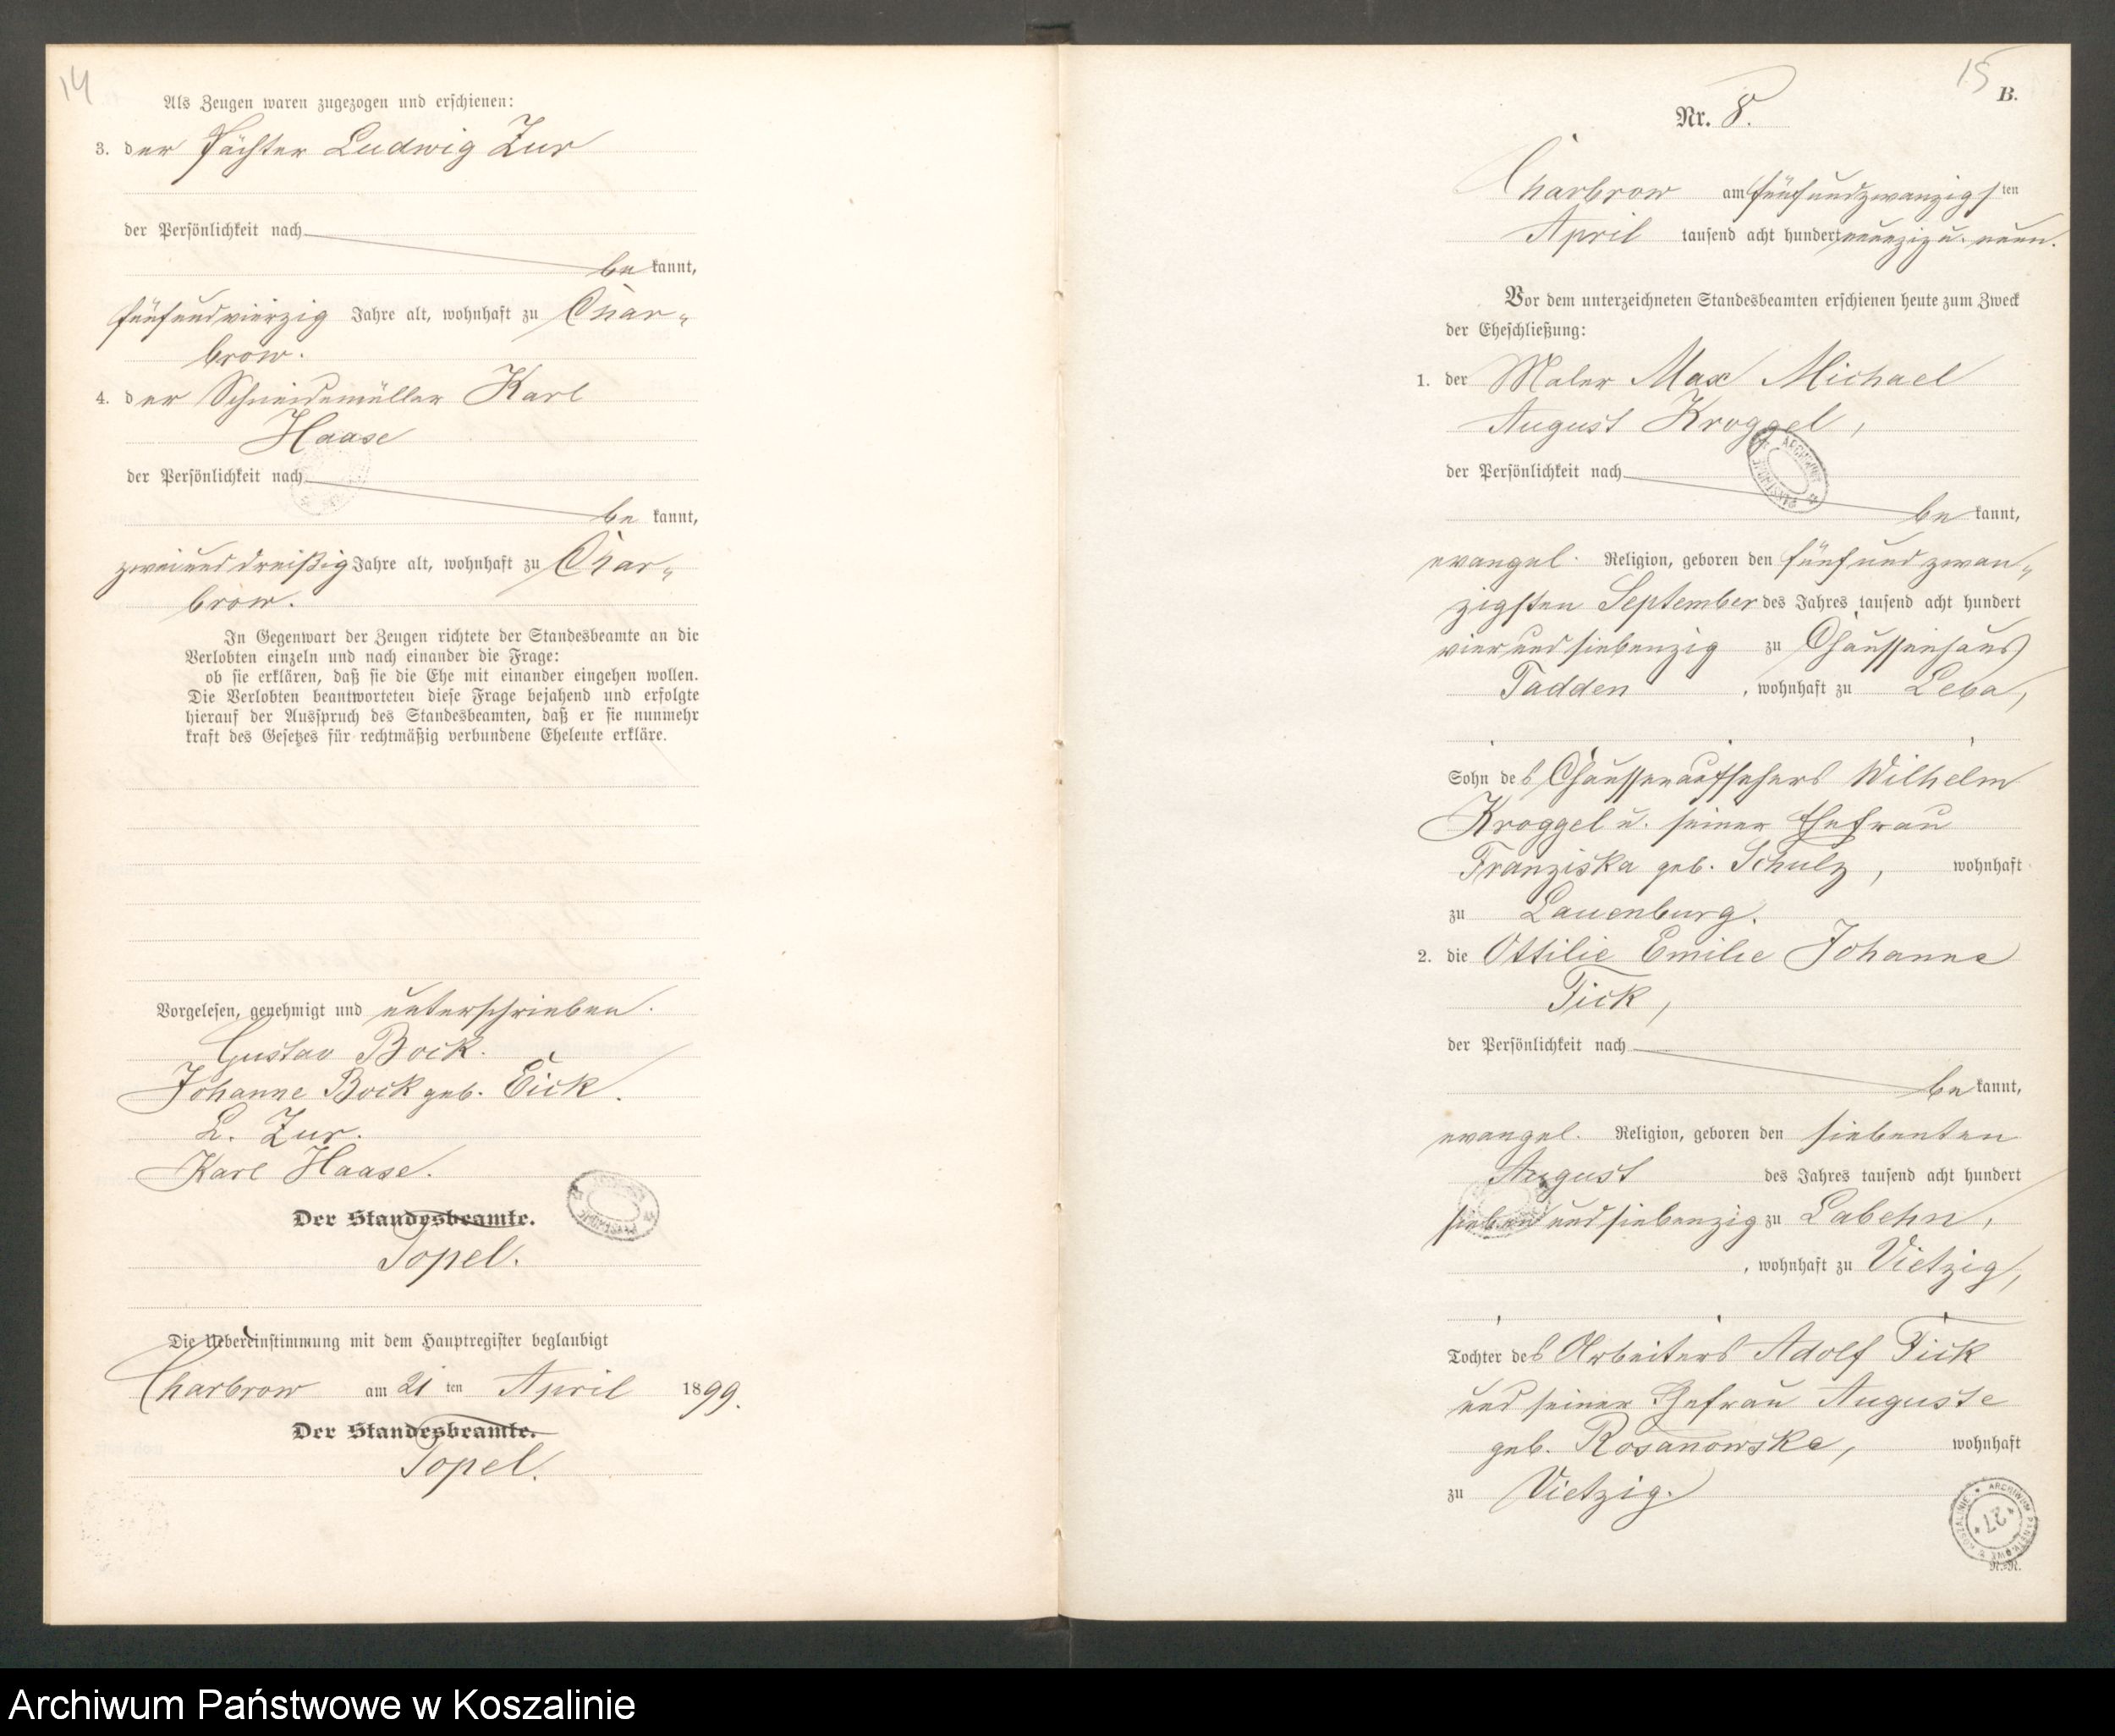 14
Als Zeugen waren zugezogen und erschienen:
3. der Pächter Ludwig Zur
der Persönlichkeit nach
be kannt,
fünfundvierzig Jahre alt, wohnhaft zu Char-
brow.
4. der Schneidemüller Karl
Haase
der Persönlichkeit nach
be kannt,
zweiunddreißig Jahre alt, wohnhaft zu Char-
brow.
In Gegenwart der Zeugen richtete der Standesbeamte an die
Verlobten einzeln und nach einander die Frage:
ob sie erklären, daß sie die Ehe mit einander eingehen wollen.
Die Verlobten beantworteten diese Frage bejahend und erfolgte
hierauf der Ausspruch des Standesbeamten, daß er sie nunmehr
kraft des Gesetzes für rechtmäßig verbundene Eheleute erkläre.
Vorgelesen, genehmigt und unterschrieben.
Gustav Bock.
Johanne Bock geb. Eick.
L. Zur.
Karl Haase.
Der Standesbeamte.
Topel.
Die Uebereinstimmung mit dem Hauptregister beglaubigt
Charbrow am 21 ten April 1899.
Der Standesbeamte.
Topel.
15
B.
Nr. 8.
Charbrow am fünfundzwanzigsten
April tausend acht hundert neunzig u. neun.
Vor dem unterzeichneten Standesbeamten erschienen heute zum Zweck
der Eheschließung:
1. der Maler Max Michael
August Kroggel,
der Persönlichkeit nach
be kannt,
evangel. Religion, geboren den fünfundzwan-
zigsten September des Jahres tausend acht hundert
vierundsiebenzig zu Chausseehaus
Tadden, wohnhaft zu Leba,
Sohn des Chausseeaufsehers Wilhelm
Kroggel u. seiner Ehefrau
Franziska geb. Schulz, wohnhaft
zu Lauenburg.
2. die Ottilie Emilie Johanne
Fick,
der Persönlichkeit nach
be kannt,
evangel. Religion, geboren den siebenten
August des Jahres tausend acht hundert
siebenundsiebenzig zu Labehn,
, wohnhaft zu Vietzig,
Tochter des Arbeiters Adolf Fick
und seiner Ehefrau Auguste
geb. Rosanowske, wohnhaft
zu Vietzig.
ARCHIWUM PAŃSTWOWE W KOSZALINIE
27
Archiwum Państwowe w Koszalinie